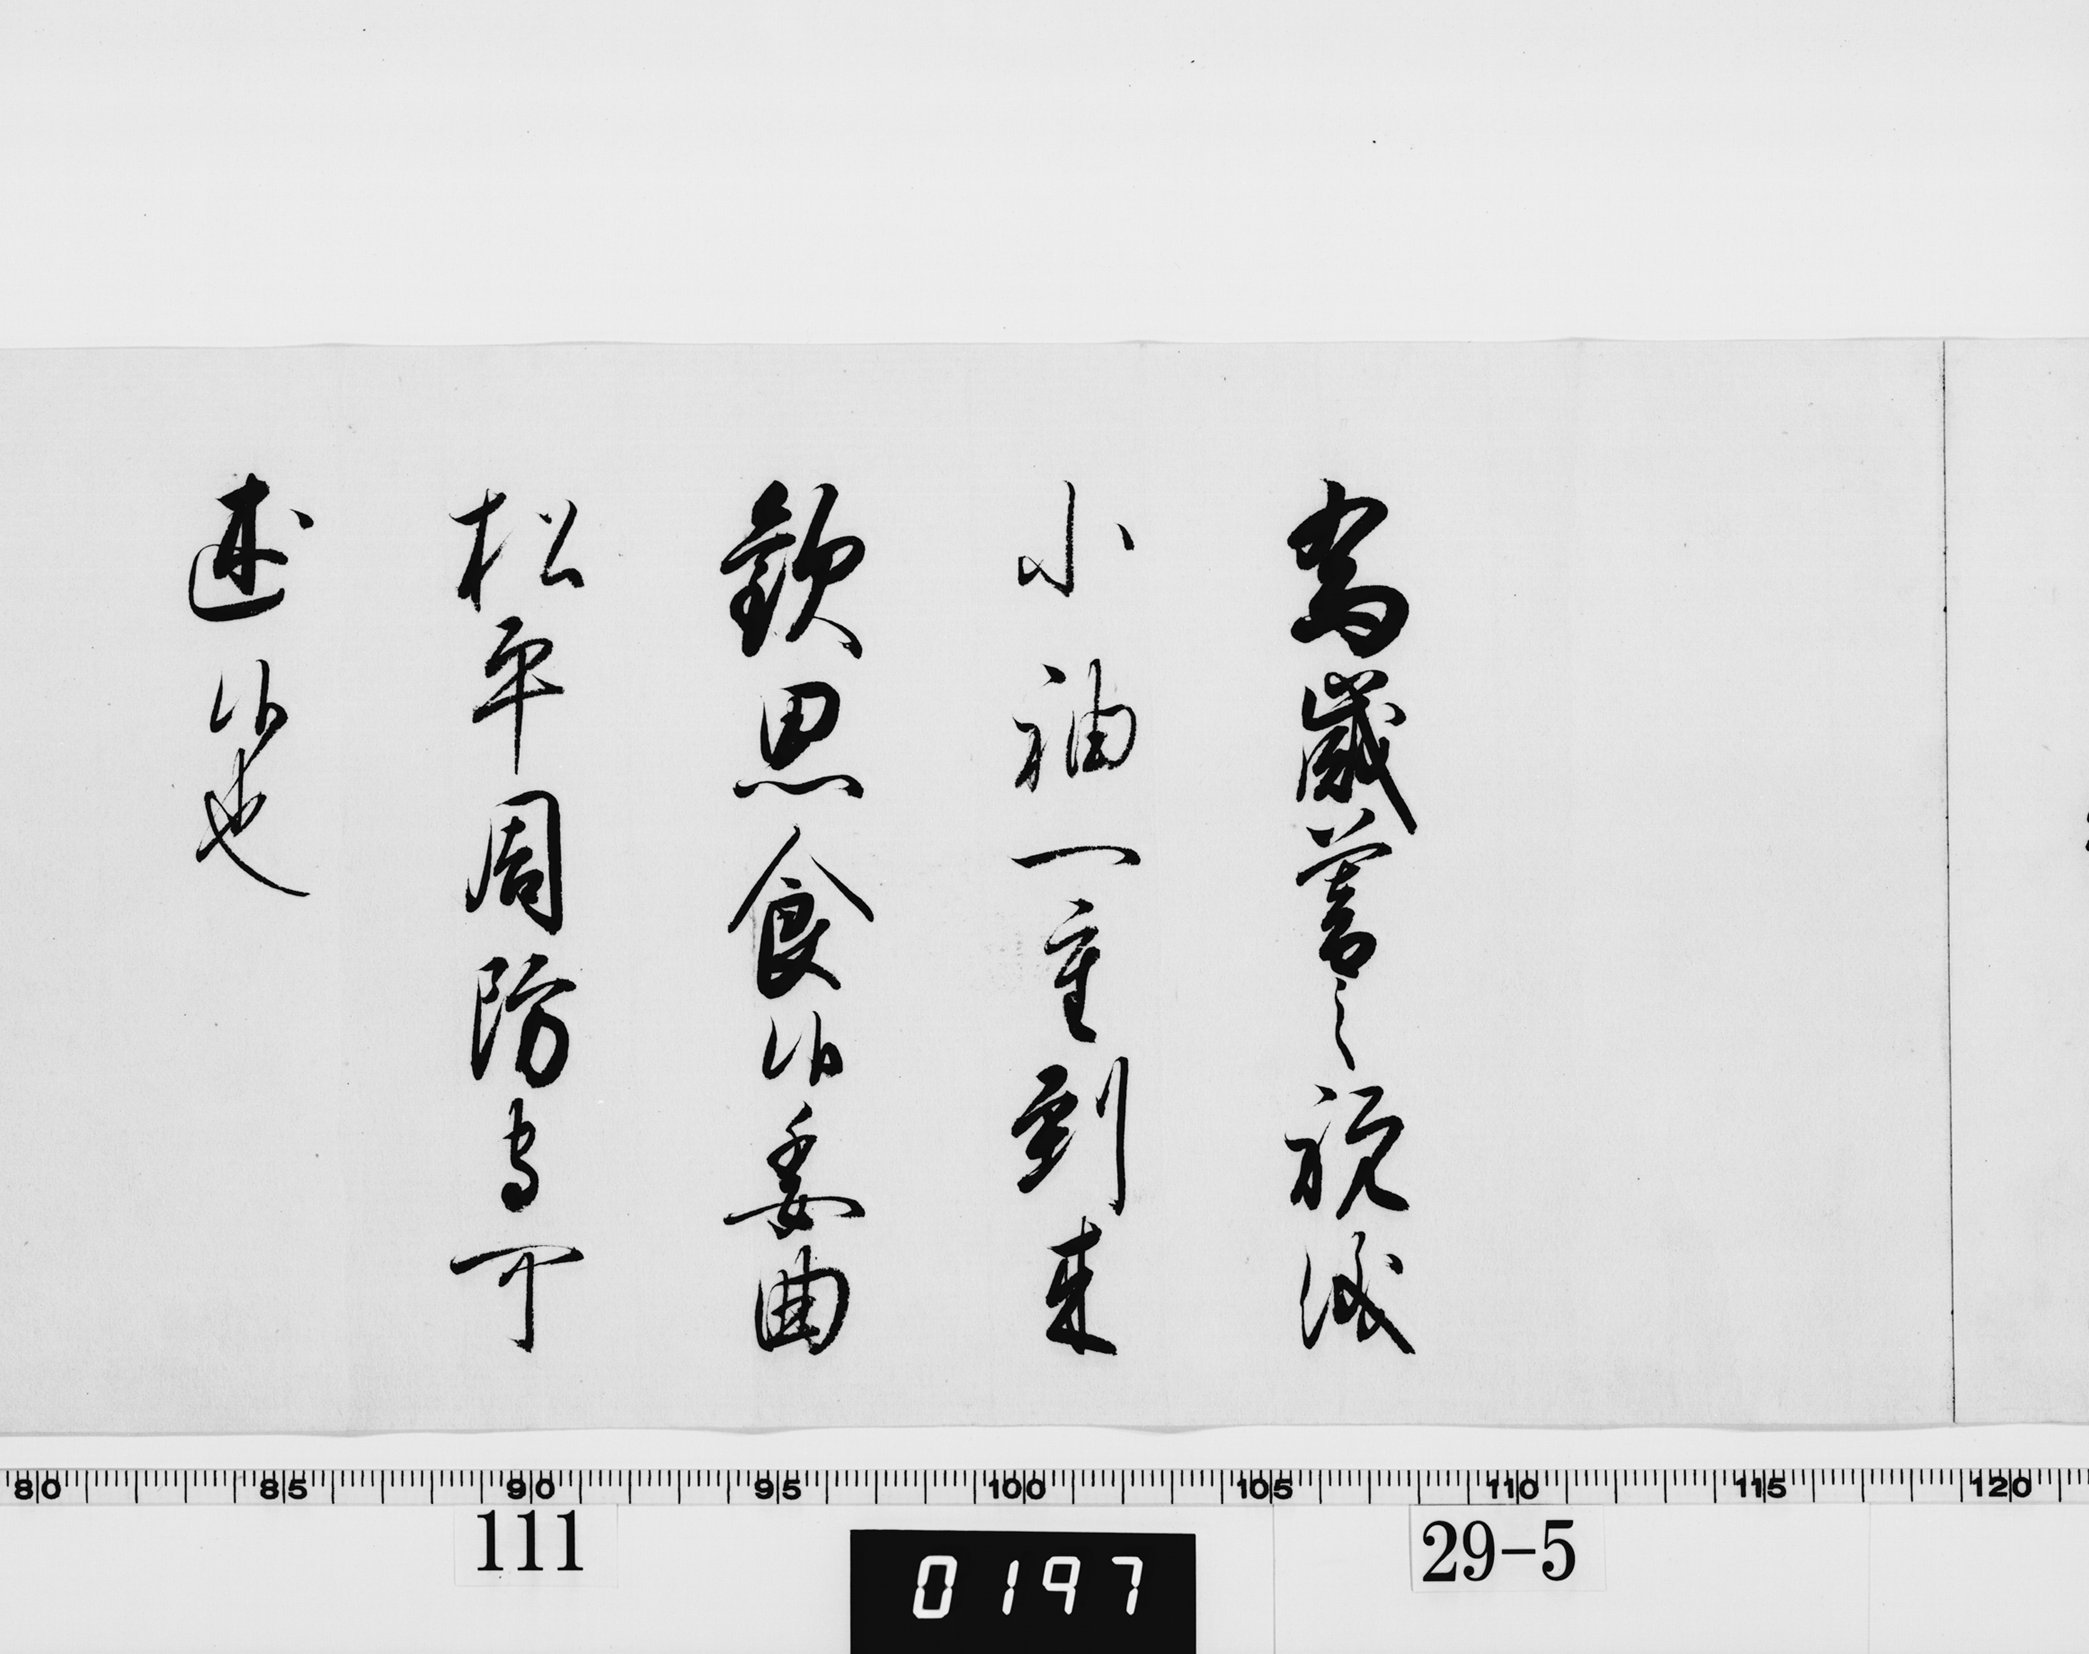 為歳暮之祝儀
小袖一重到来
歓思食候委曲
松平周防守可
述候也
80 85 90 95 100 105 110 115 120
111
0197
29-5